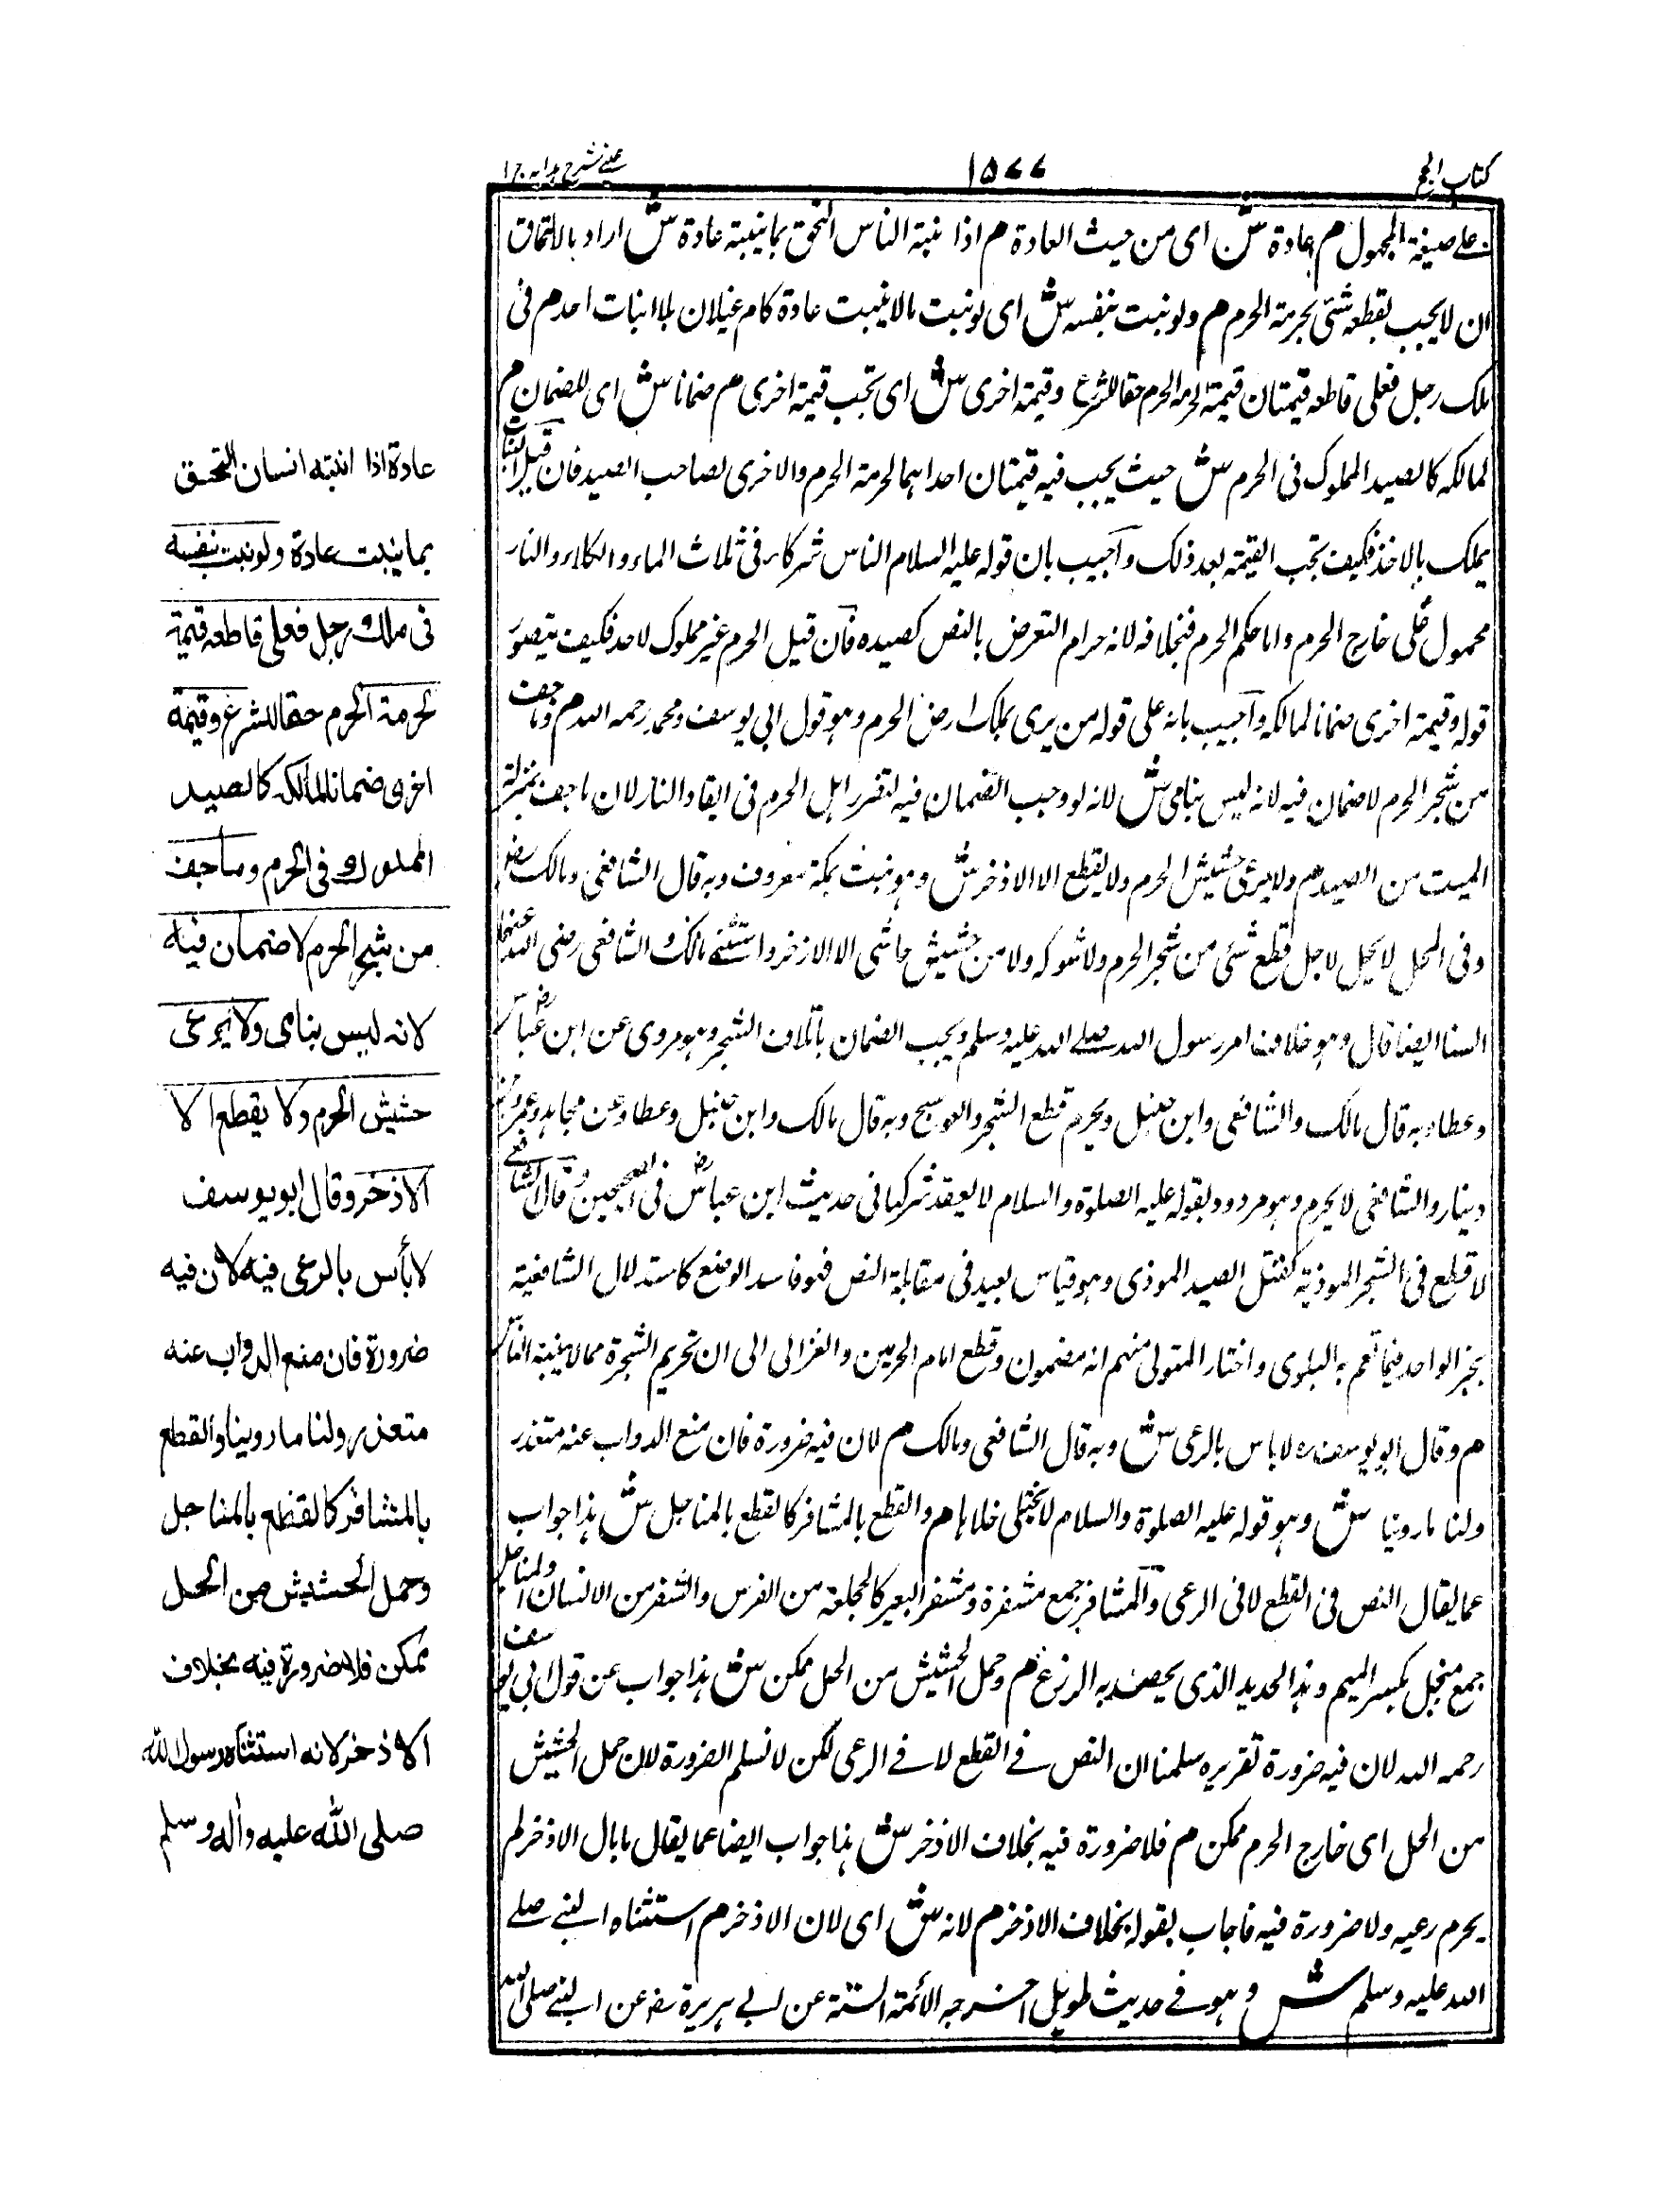 كتاب الحج
١٥٧٧
عينى شرح هدايه ج ١
على صيغة المجهول م عادة ش اى من حيث العادة م اذا نبته الناس التحق بما ينبته عادة ش اراد بالالتحاق
ان لا يجب بقطعه شئ بحرمة الحرم م ولو نبت بنفسه ش اى لو نبت مالا ينبت عادة كام غيلان بلا انبات احد م فى
ملك رجل فعلى قاطعه قيمتان قيمة لحرمة الحرم حقا للشرع وقيمة اخرى ش اى تجب قيمة اخرى م ضمانا ش اى للضمان م
لمالكه كالصيد المملوك فى الحرم ش حيث يجب فيه قيمتان احداهما لحرمة الحرم والاخرى لصاحب الصيد فان قيل النبات
يملك بالاخذ فكيف تجب القيمة بعد ذلك واجيب بان قوله عليه السلام الناس شركاء فى ثلاث الماء والكلاء والنار
محمول على خارج الحرم واما حكم الحرم فبخلافه لانه حرام التعرض بالنص كصيده فان قيل الحرم غير مملوك لاحد فكيف يتصور
قوله وقيمة اخرى ضمانا لمالكه واجيب بانه على قول من يرى بملك ارض الحرم وهو قول ابى يوسف ومحمد رحمه الله م وما جف
من شجر الحرم لا ضمان فيه لانه ليس بنامى ش لانه لو وجب الضمان فيه لتضرر اهل الحرم فى ايقاد النار لان ما جف بمنزلة
الميت من الصيد م ولا يرعى حشيش الحرم ولا يقطع الا الاذخر ش وهو نبت بمكة معروف وبه قال الشافعى ومالك رض
وفى المحل لا يحل لاجل قطع شئ من شجر الحرم ولا شوكه ولا من حشيش حاشى الا الاذخر واستثنى مالك والشافعى رضى الله عنهما
السنا ايضا قال وهو خلاف امر رسول الله صلى الله عليه وسلم ويجب الضمان باتلاف الشجر وهو مروى عن ابن عباس رض
وعطاء وبه قال مالك والشافعى وابن حنبل ويحرم قطع الشجر والعوسج وبه قال مالك وابن حنبل وعطا وعن مجاهد وعمرو بن
دينار والشافعى لا يحرم وهو مردود بقوله عليه الصلوة والسلام لا يعضد شوكها فى حديث ابن عباس رض فى الصحيحين وقال الشافعى
لا قطع فى الشجر الموذية كقتل الصيد الموذى وهو قياس بعيد فى مقابلة النص فهو فاسد الوضع كاستدلال الشافعية
بخبر الواحد فيما تعم به البلوى واختار المتولى منهم انه مضمون وقطع امام الحرمين والغزالى الى ان تحريم الشجرة مما لا ينبته الناس
م وقال ابو يوسف ره لا باس بالرعى ش وبه قال الشافعى ومالك م لان فيه ضرورة فان منع الدواب عنه متعذر
ولنا ما روينا ش وهو قوله عليه الصلوة والسلام لا يختلى خلاها م والقطع بالمشافر كالقطع بالمناجل ش هذا جواب
عما يقال النص فى القطع لا فى الرعى والمشافر جمع مشفرة ومشفر البعير كالجحفلة من الفرس والشفر من الانسان والمناجل
جمع منجل بكسر الميم وهذا الحديد الذى يحصد به الزرع م وحمل الحشيش من الحل ممكن ش هذا جواب عن قول ابى يوسف
رحمه الله لان فيه ضرورة تقريره سلمنا ان النص فى القطع لا فى الرعى لكن لا نسلم الضرورة لان حمل الحشيش
من الحل اى خارج الحرم ممكن م فلا ضرورة فيه بخلاف الاذخر ش هذا جواب ايضا عما يقال ما بال الاذخر لم
يحرم رعيه ولا ضرورة فيه فاجاب بقوله بخلاف الاذخر م لانه ش اى لان الاذخر م استثناه النبى صلى
الله عليه وسلم ش وهو فى حديث طويل اخرجه الائمة الستة عن ابى هريرة رض عن النبى صلى الله
عادة اذا انبته انسان التحق
بما ينبت عادة ولو نبت بنفسه
فى ملك رجل فعلى قاطعه قيمة
لحرمة الحرم حقا للشرع وقيمة
اخرى ضمانا لمالكه كالصيد
المملوك فى الحرم وما جف
من شجر الحرم لا ضمان فيه
لانه ليس بنامى ولا يرعى
حشيش الحرم ولا يقطع الا
الاذخر وقال ابو يوسف
لا بأس بالرعى فيه لان فيه
ضرورة فان منع الدواب عنه
متعذر ولنا ما روينا والقطع
بالمشافر كالقطع بالمناجل
وحمل الحشيش من الحل
ممكن فلا ضرورة فيه بخلاف
الاذخر لانه استثناه رسول الله
صلى الله عليه واله وسلم